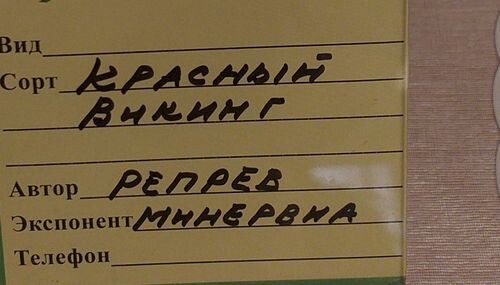 Вид
Сорт КРАСНЫЙ
ВИКИНГ
Автор РЕПРЕВ
Экспонент МИНЕРВИА
Телефон